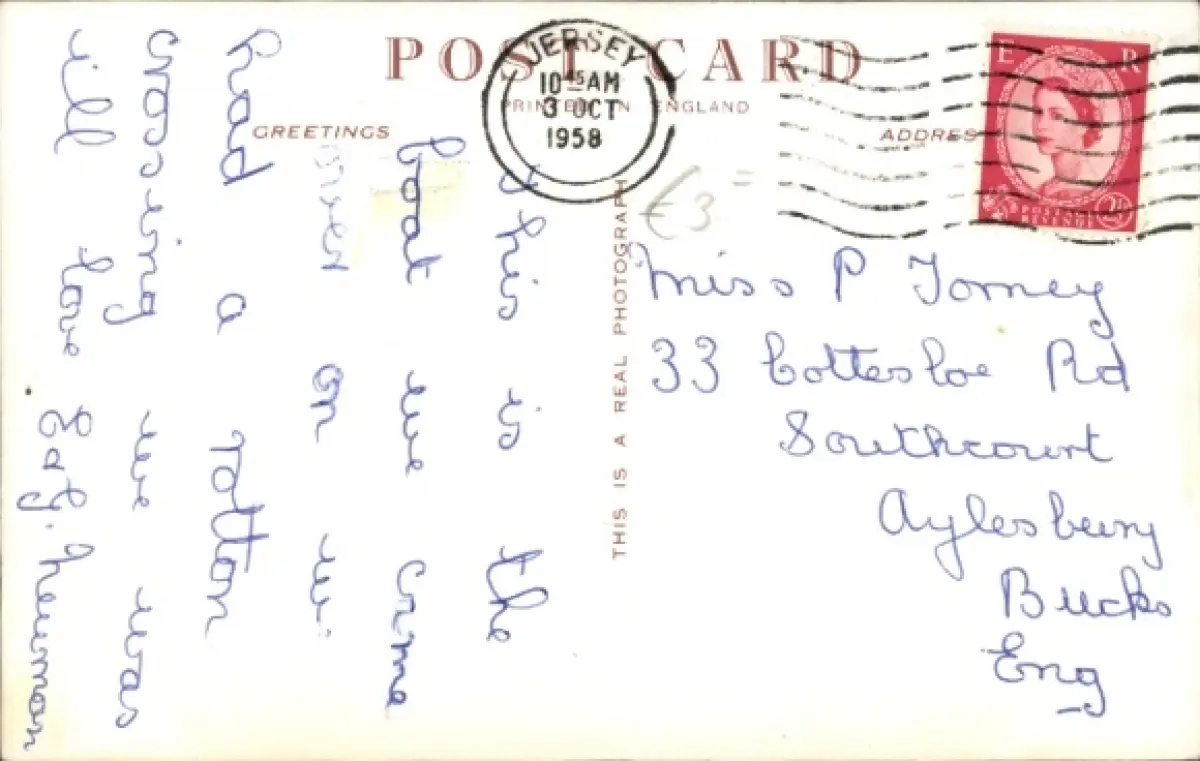 POST CARD
PRINTED IN ENGLAND
GREETINGS
ADDRESS
JERSEY
10 15 AM
3 OCT
1958
E R
POSTAGE REVENUE
2½D
£3
THIS IS A REAL PHOTOGRAPH
This is the
boat we came
over on we
had a rotton
crossing we was
ill love
E & J. Newman
Miss P Torney
33 Cottesloe Rd
Southcourt
Aylesbury
Bucks
Eng